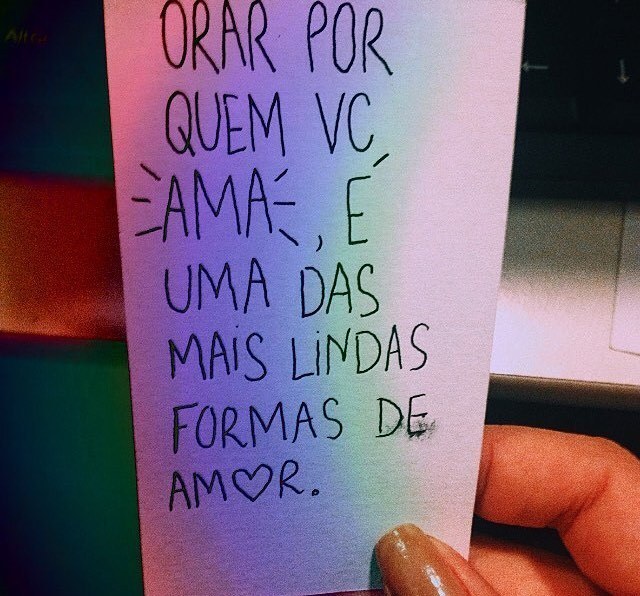 ORAR POR
QUEM VC
AMA, É
UMA DAS
MAIS LINDAS
FORMAS DE
AM♡R.